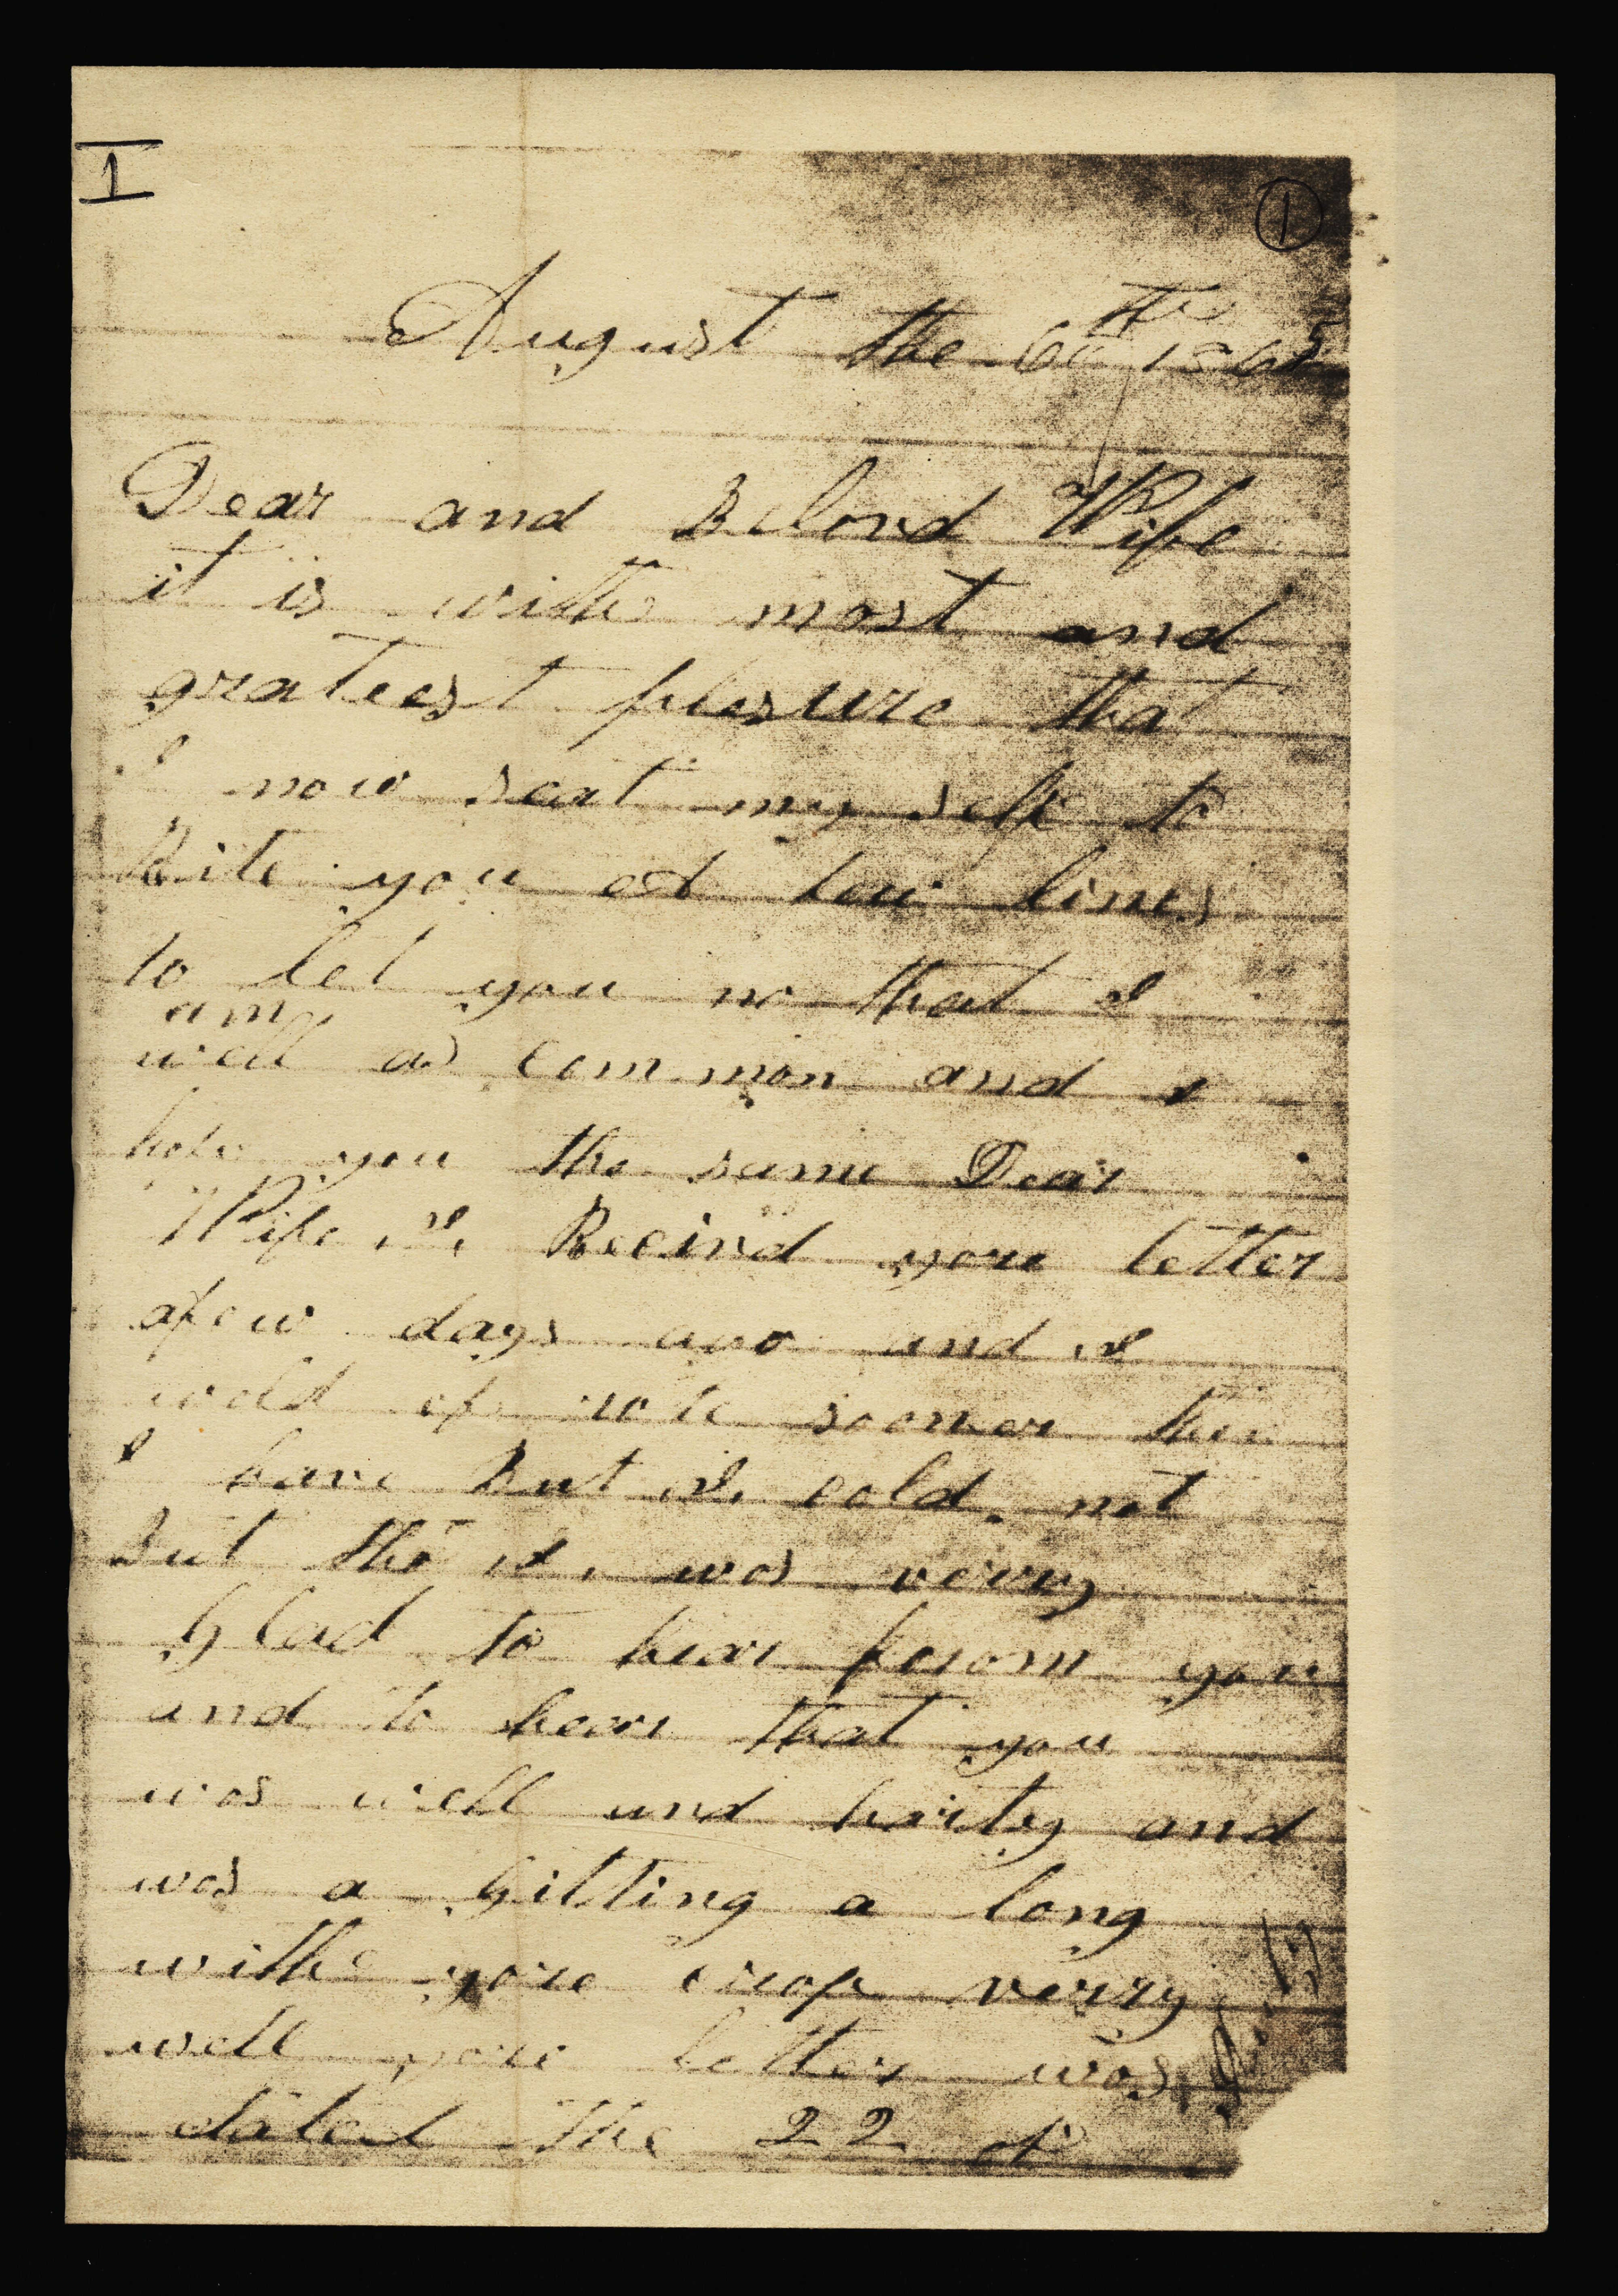 I
1
August the 6th 1865
Dear and Belovd Wife
it is withe most and
grateest plesure that
I now seat my self to
Rite you a few lines
to let you no that I
am
well as common and I
hope you the same Dear
Wife I Recivd youre letter
afew days ago and I
wold of rote sooner then
I have But I cold not
But tho I was verry
Glad to hear from you
and to hear that you
was well and harty and
was a Gitting a long
withe youre crop verry
well youre letter was
dated the 22 of